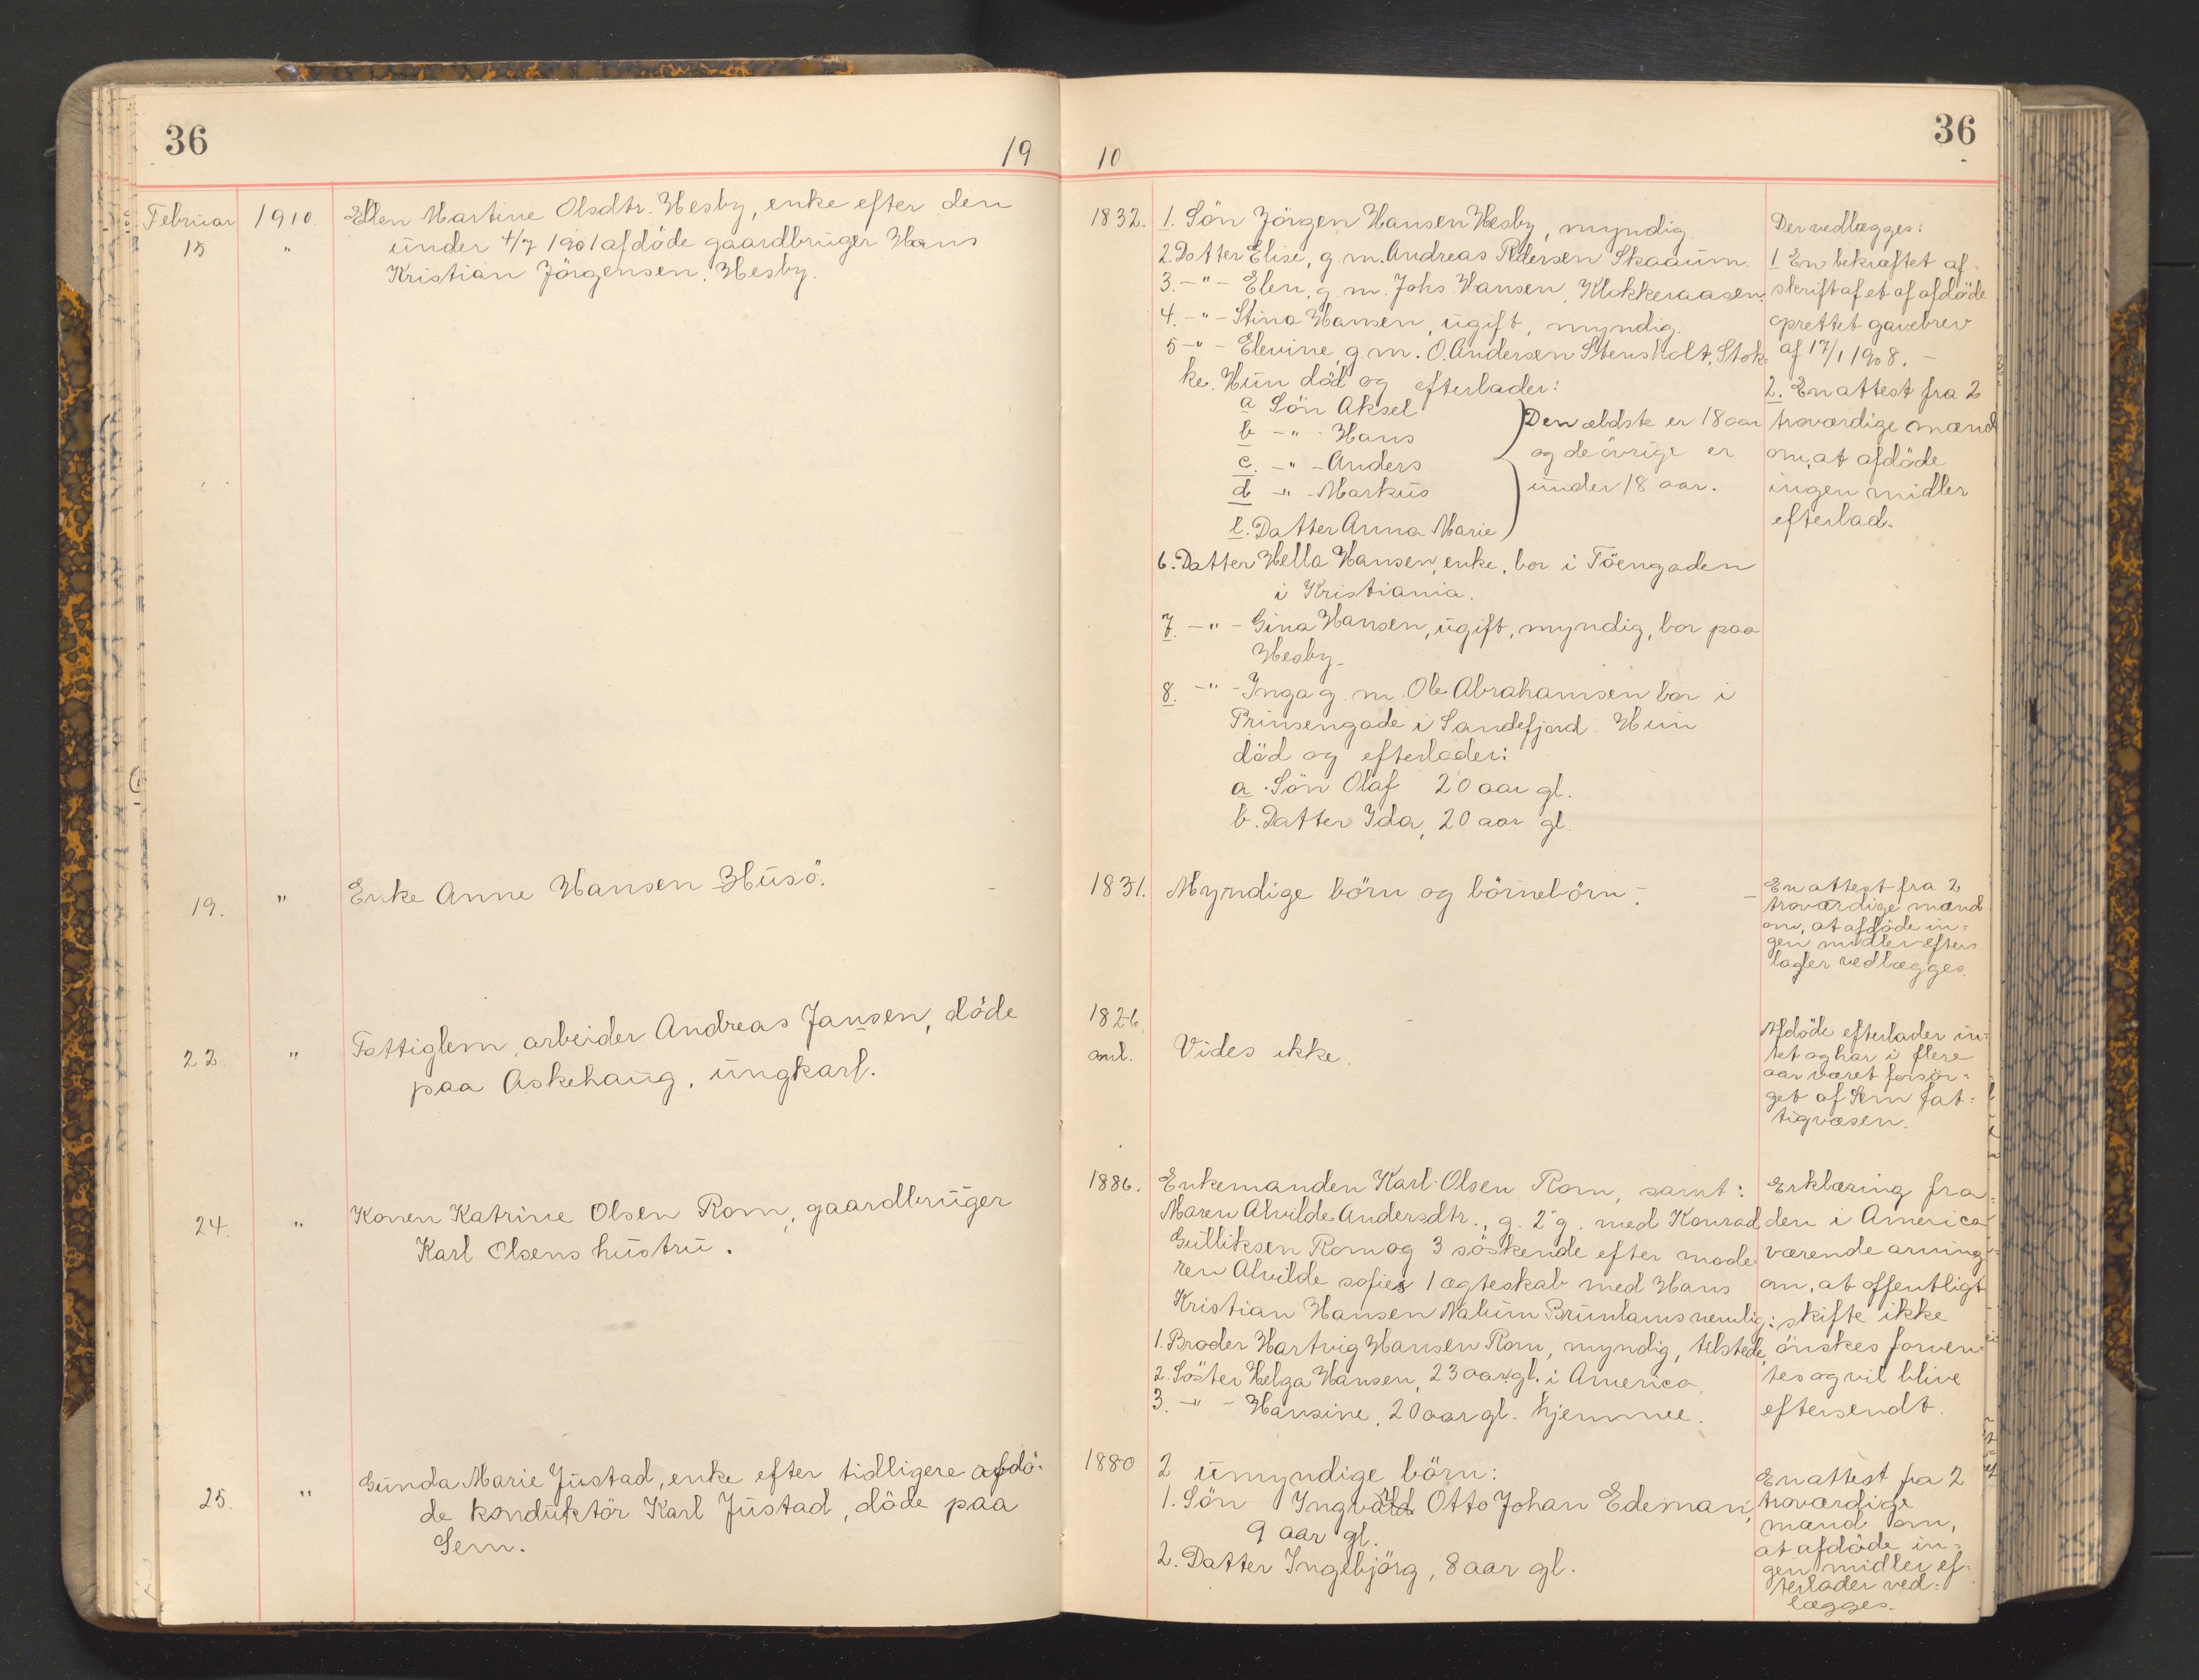 36
19 10
36
Februar 1910. Ellen Martine Olsdtr. Hesby, enke efter den
15 " under 4/7 1901 afdöde gaardbruger Hans
Kristian Jörgensen Hesby.
1832. 1. Sön Jörgen Hansen Hesby, myndig.
2. Datter Elise, g. m. Andreas Pedersen Skaaum.
3. -"- Elen, g. m. Johs. Hansen, Klokkeraasen.
4. -"- Stina Hansen, ugift, myndig.
5 -"- Elevine, g. m. O. Andersen Stensholt, Stok=
ke. Hun död og efterlader:
a Sön Aksel
b -"- Hans
c. -"- Anders
d -"- Markus
e. Datter Anna Marie
Den ældste er 18 aar
og de övrige er
under 18 aar.
6. Datter Hella Hansen, enke, bor i Töengaden
i Kristiania.
7. -"- Gina Hansen, ugift, myndig, bor paa
Hesby.
8. -"- Inga g. m. Ole Abrahamsen bor i
Prinsengade i Sandefjord. Hun
död og efterlader:
a. Sön Olaf 20 aar gl.
b. Datter Ida, 20 aar gl.
Der vedlægges:
1 En bekræftet af-
skrift af et af afdöde
oprettet gavebrev
af 17/1 1908. -
2. En attest fra 2
troværdige mænd
om, at afdöde
ingen midler
efterlad.
19. " Enke Anne Hansen Husö.
1831. Myndige börn og börnebörn. -
En attest fra 2
troværdige mænd
om, at afdöde in=
gen midler efter=
lader vedlægges.
22. " Fattiglem, arbeider Andreas Jansen, döde
paa Askehaug, ungkarl.
1826
anl. Vides ikke.
Afdöde efterlader in=
tet og har i flere
aar været forsör=
get af Sem fat=
tigvæsen.
24. " Konen Katrine Olsen Rom, gaardbruger
Karl Olsens hustru.
1886. Enkemanden Karl Olsen Rom, samt:
Maren Alvilde Andersdtr., g. 2 g. med Konrad
Gulliksen Rom og 3 söskende efter mode
ren Alvilde sofies 1 ægteskab med Hans
Kristian Hansen Nalum Brunlanes nemlig:
1. Broder Hartvig Hansen Rom, myndig, tilstede,
2. Söster Helga Hansen, 23 aar gl. i America.
3. -"- Hansine, 20 aar gl. hjemme.
Erklæring fra
den i America
værende arving
om, at offentligt
skifte ikke
önskes forven
tes og vil blive
eftersendt.
25. " Gunda Marie Justad, enke efter tidligere afdö-
de konduktör Karl Justad, döde paa
Sem.
1880 2 umyndige börn:
1. Sön Ingvald Otto Johan Edeman,
9 aar gl.
2. Datter Ingebjörg, 8 aar gl.
En attest fra 2
troværdige
mænd om,
at afdöde in=
gen midler ef-
terlader ved=
lægges.